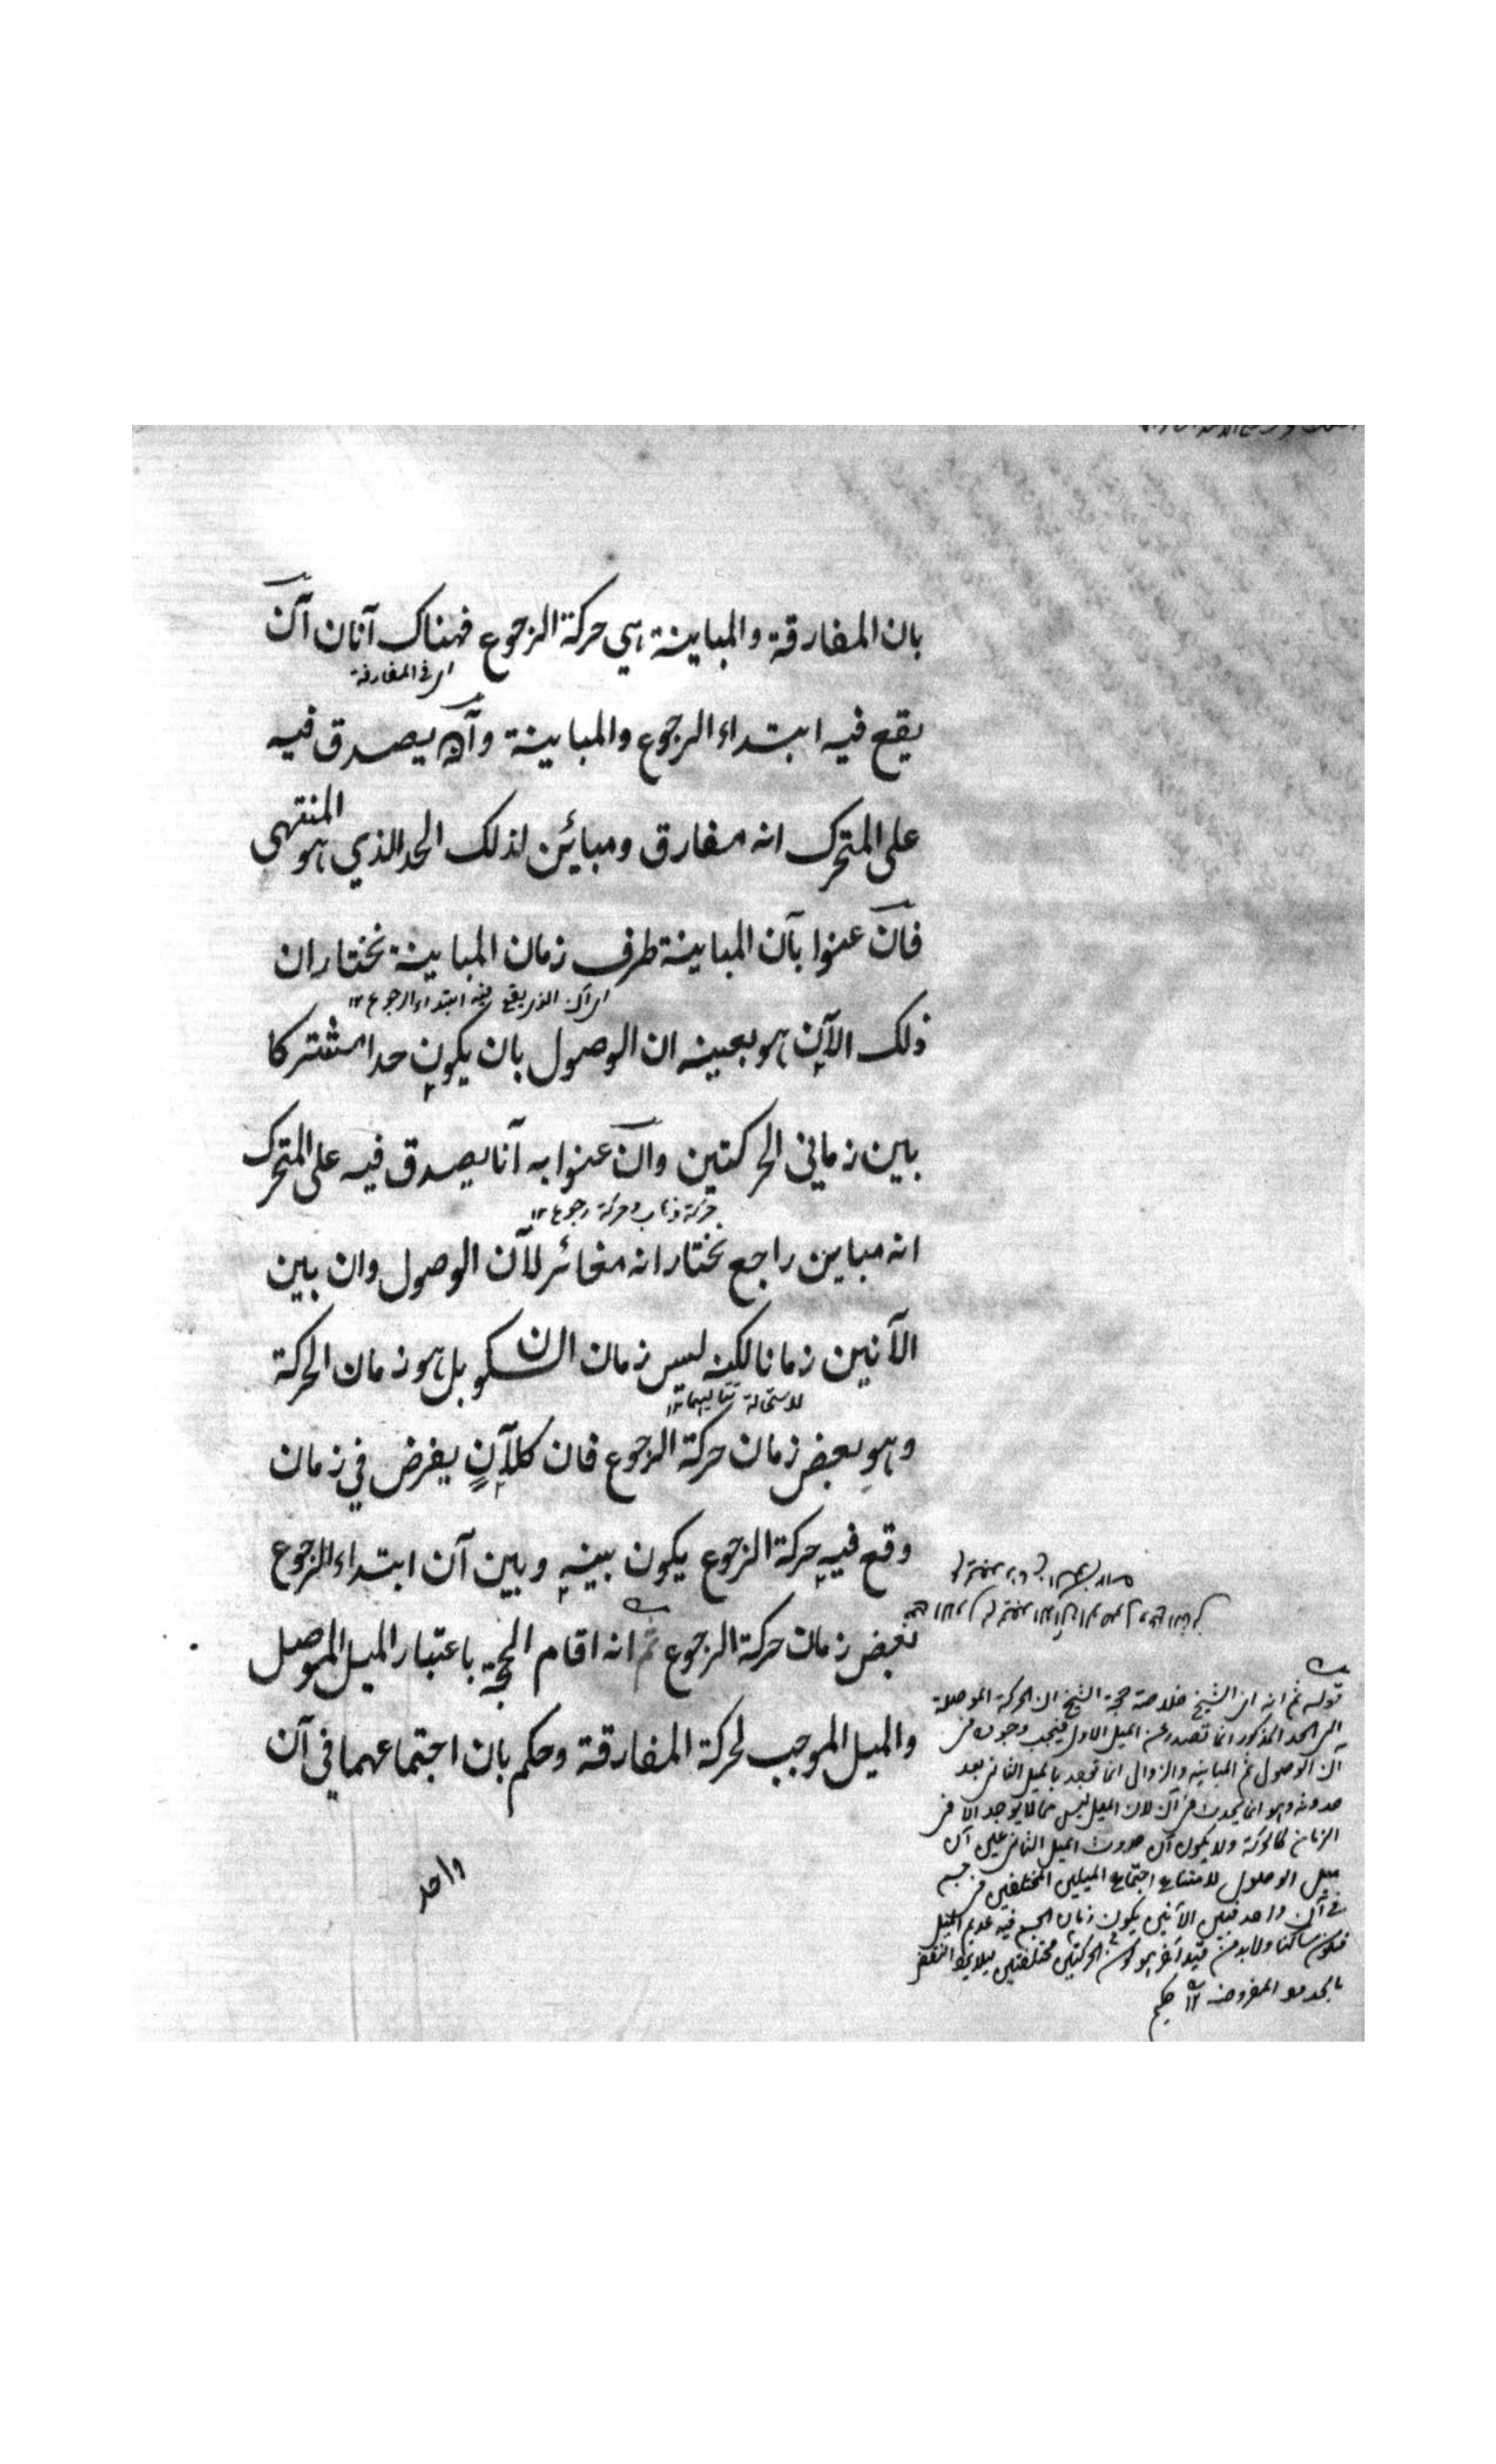 بان المفارقة والمباينة هي حركة الرجوع فهناك آنان آن
اى فى المفارقة
يقع فيه ابتداء الرجوع والمباينة وآن يصدق فيه
على المتحرك انه مفارق ومبائن لذلك الحد الذي هو المنتهى
فان عنوا بآن المباينة طرف زمان المباينة نختار ان
اى آن الذى يقع فيه ابتداء الرجوع ١٢
ذلك الآن هو بعينه ان الوصول بان يكون حدا مشتركا
بين زماني الحركتين وان عنوا به آنا يصدق فيه على المتحرك
حركة ذهاب وحركة رجوع ١٢
انه مباين راجع نختار انه مغائر لآن الوصول وان بين
الآنين زمانا لكنه ليس زمان السكون بل هو زمان الحركة
لاستحالة تتاليهما ١٢
وهو بعض زمان حركة الرجوع فان كل آن يفرض في زمان
وقع فيه حركة الرجوع يكون بينه وبين آن ابتداء الرجوع
بعض زمان حركة الرجوع ثم انه اقام الحجة باعتبار الميل الموصل
والميل الموجب لحركة المفارقة وحكم بان اجتماعهما في آن
واحد
قوله ثم انه اى الشيخ خلاصة حجة الشيخ ان الحركة الموصلة
الى الحد المذكور انما تصدر عن الميل الاول فيجب وجوده فى
آن الوصول ثم المباينة والزوال انما توجد بالميل الثانى بعد
حدوثه وهو انما يحدث فى آن لان الميل ليس مما لا يوجد الا فى
الزمان كالحركة ولا يكون آن حدوث الميل الثانى عين آن
ميل الوصول لامتناع اجتماع الميلين المختلفين فى جسم
فى آن واحد فبين الآنين يكون زمان الجسم فيه عديم الميل
فيكون ساكنا ولابد من قيد آخر هو كون الحركتين مختلفتين لئلا يرد النقض
بالحدود المفروضة ١٢ حكيم